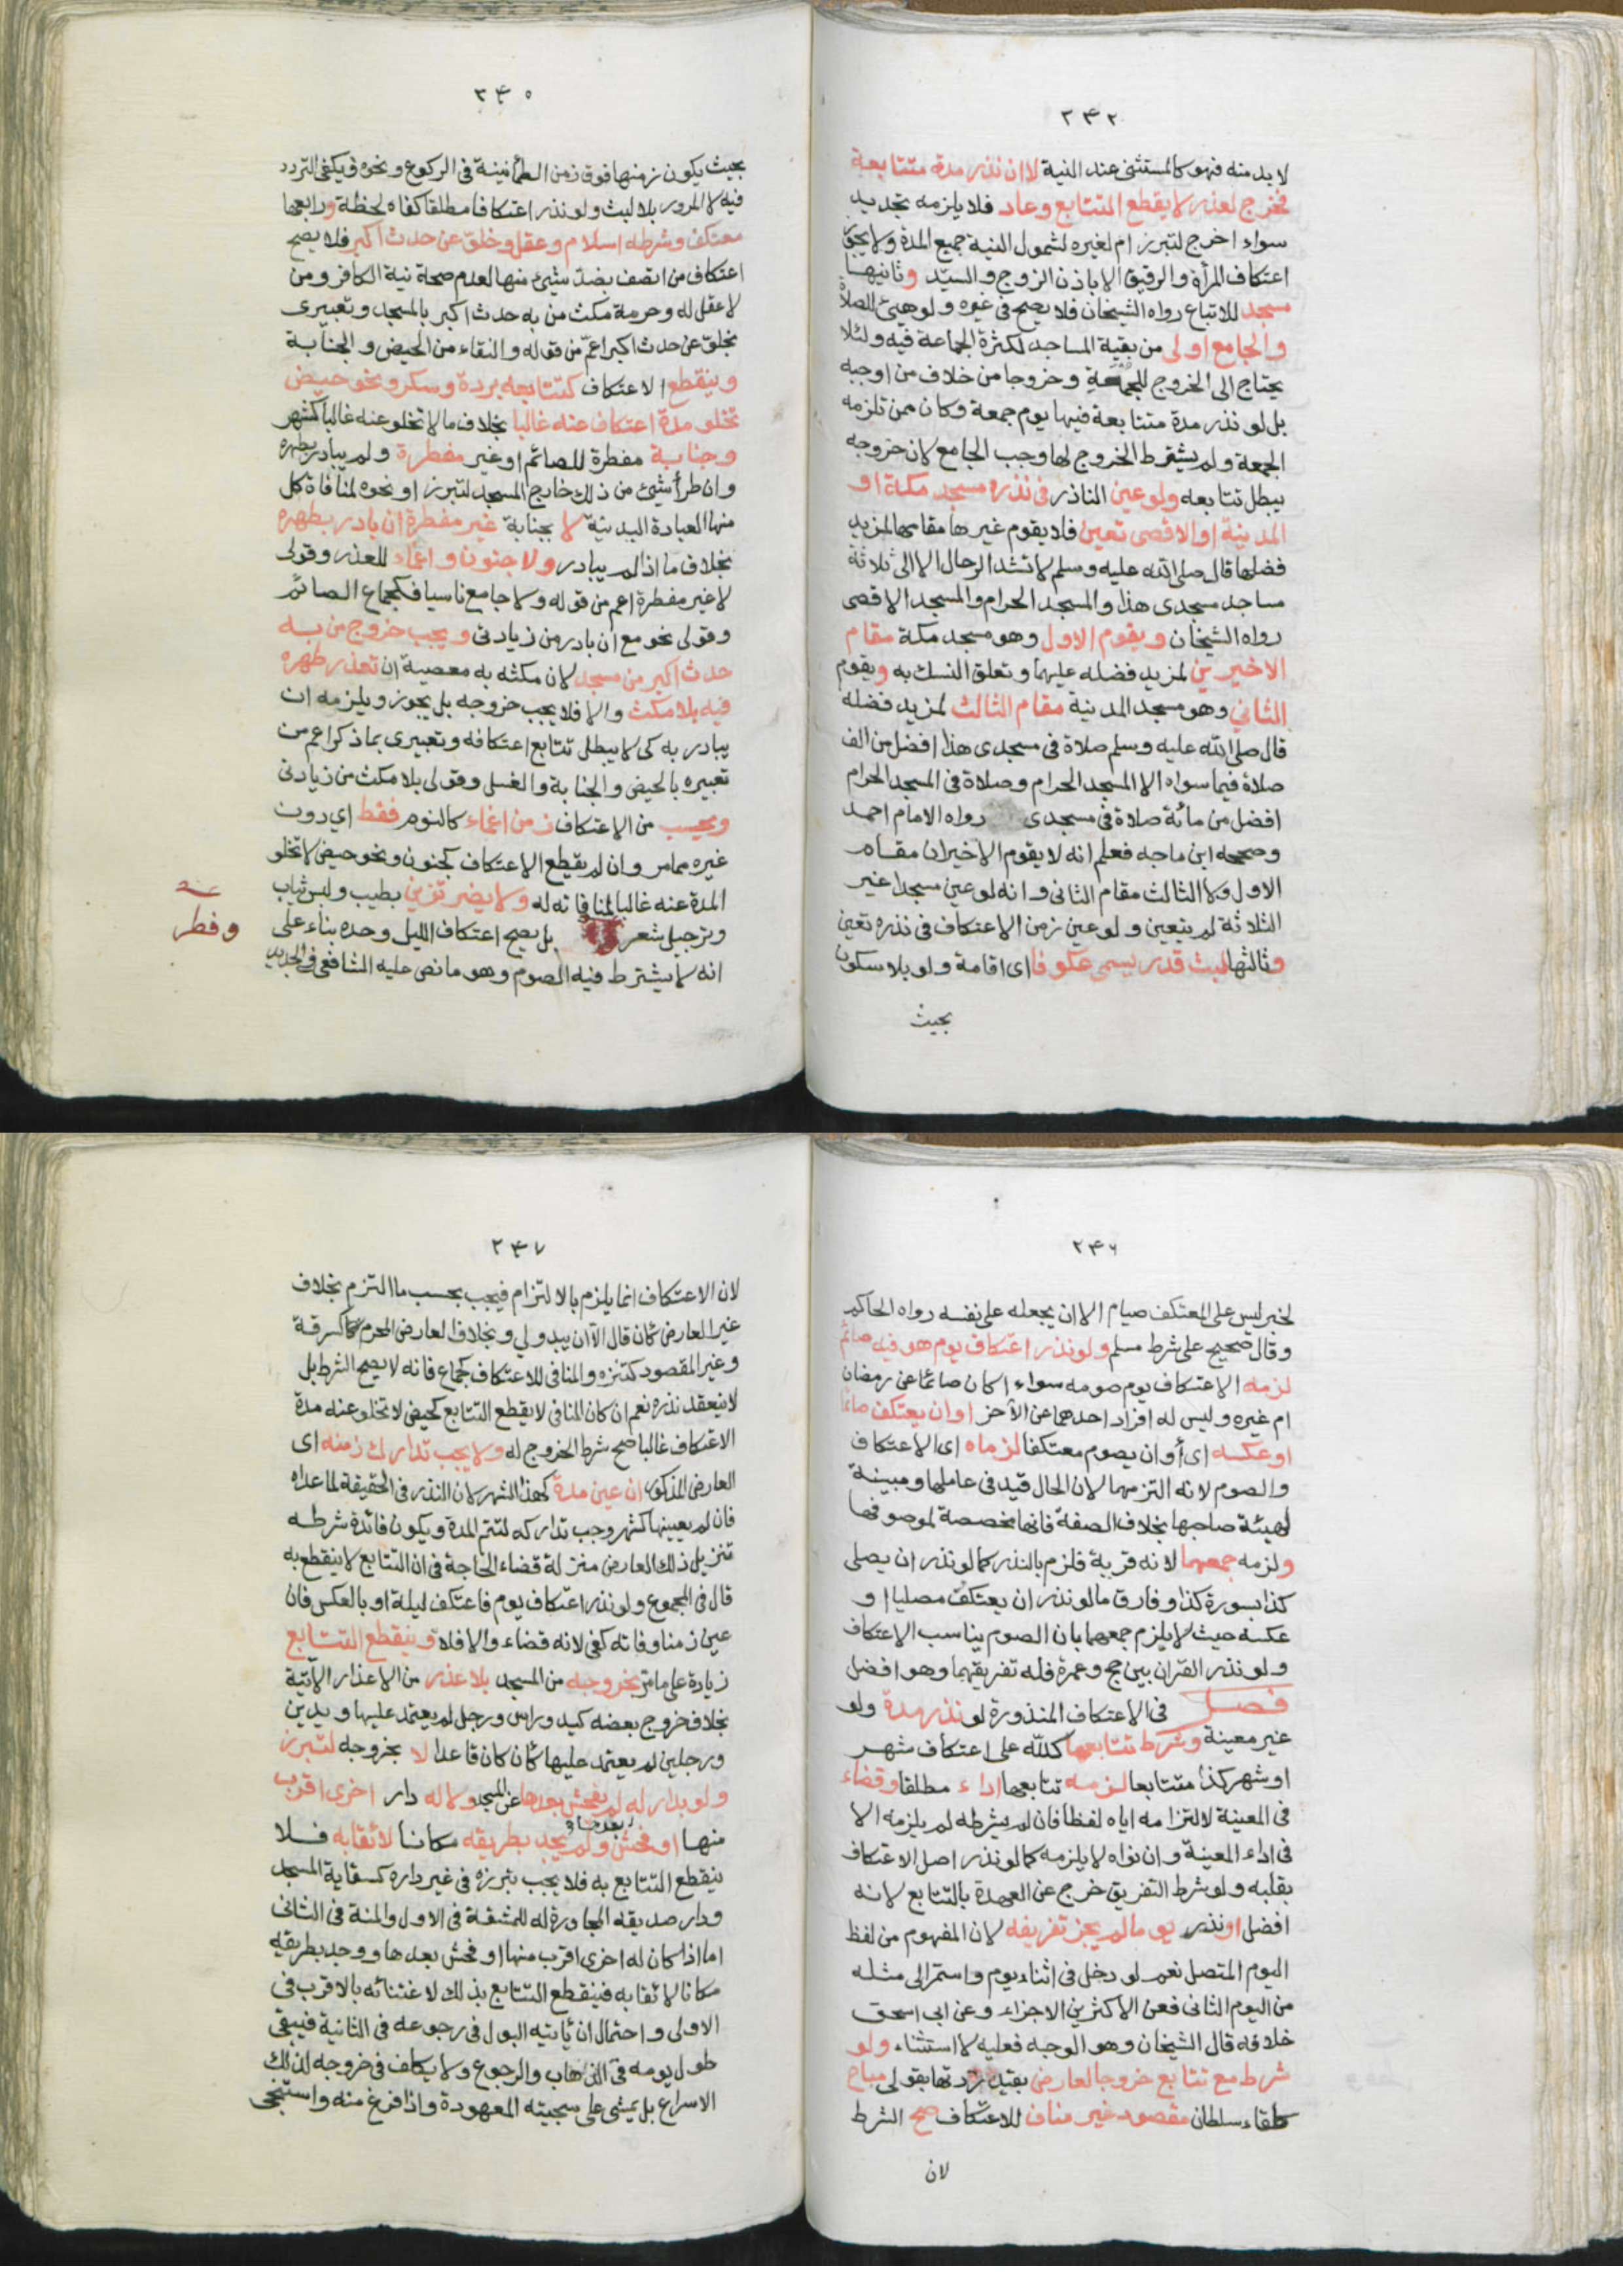 ٢٤٢
لا بد منه فهو كالمستثنى عند النية لا ان نذر مدة متتابعة
فخرج لعذر لا يقطع التتابع وعاد فلا يلزمه تجديد
سواء اخرج لتبرز ام لغيره لشمول النية جميع المدة ولا يجوز
اعتكاف المرأة والرقيق الا باذن الزوج والسيد وثانيها
مسجد للاتباع رواه الشيخان فلا يصح في غيره ولو هيئ للصلاة
والجامع اولى من بقية المساجد لكثرة الجماعة فيه ولئلا
يحتاج الى الخروج للجمعة وخروجا من خلاف من اوجبه
بل لو نذر مدة متتابعة فيها يوم جمعة وكان ممن تلزمه
الجمعة ولم يشترط الخروج لها وجب الجامع لان خروجه
يبطل تتابعه ولو عين الناذر في نذره مسجد مكة او
المدينة او الاقصى تعين فلا يقوم غيرها مقامها لمزيد
فضلها قال صلى الله عليه وسلم لا تشد الرحال الا الى ثلاثة
مساجد مسجدى هذا والمسجد الحرام والمسجد الاقصى
رواه الشيخان ويقوم الاول وهو مسجد مكة مقام
الاخيرين لمزيد فضله عليهما وتعلق النسك به ويقوم
الثاني وهو مسجد المدينة مقام الثالث لمزيد فضله
قال صلى الله عليه وسلم صلاة في مسجدى هذا افضل من الف
صلاة فيما سواه الا المسجد الحرام وصلاة في المسجد الحرام
افضل من مائة صلاة في مسجدى رواه الامام احمد
وصححه ابن ماجه فعلم انه لا يقوم الاخيران مقام
الاول ولا الثالث مقام الثانى وانه لو عين مسجدا غير
الثلاثة لم يتعين ولو عين زمن الاعتكاف في نذره تعين
وثالثها لبث قدر يسمى عكوفا اى اقامة ولو بلا سكون
بحيث
٢٤٥
بحيث يكون زمنها فوق زمن الطمأنينة في الركوع ونحوه فيكفى التردد
فيه لا المرور بلا لبث ولو نذر اعتكافا مطلقا كفاه لحظة ورابعها
معتكف وشرطه اسلام وعقل وخلو عن حدث اكبر فلا يصح
اعتكاف من اتصف بضد شيئ منها لعدم صحة نية الكافر ومن
لا عقل له وحرمة مكث من به حدث اكبر بالمسجد وتعبيرى
بخلو عن حدث اكبر اعم من قوله والنقاء من الحيض والجنابة
وينقطع الاعتكاف كتتابعه بردة وسكر ونحو حيض
تخلو مدة اعتكاف عنه غالبا بخلاف ما لا تخلو عنه غالبا كشهر
وجنابة مفطرة للصائم او غير مفطرة ولم يبادر بطهره
وان طرأ شيئ من ذلك خارج المسجد لتبرز او نحوه لمنافاة كل
منها العبادة البدنية لا بجنابة غير مفطرة ان بادر بطهره
بخلاف ما اذا لم يبادر ولا جنون واغماء للعذر وقولى
لا غير مفطرة اعم من قوله ولا جامع ناسيا فكجماع الصائم
وقولى نحو مع ان بادر من زيادتى ويجب خروج من به
حدث اكبر من مسجد لان مكثه به معصية ان تعذر طهره
فيه بلا مكث والا فلا يجب خروجه بل يجوز ويلزمه ان
يبادر به كى لا يبطل تتابع اعتكافه وتعبيرى بما ذكر اعم من
تعبيره بالحيض والجنابة والغسل وقولى بلا مكث من زيادتى
ويحسب من الاعتكاف زمن اغماء كالنوم فقط اي دون
غيره مما مر وان لم يقطع الاعتكاف كجنون ونحو حيض لا تخلو
المدة عنه غالبا لمنافاته له ولا يضر تزين بطيب ولبس ثياب
وترجيل شعر بل يصح اعتكاف الليل وحده بناء على
وفطر
انه لا يشترط فيه الصوم وهو ما نص عليه الشافعي في الجديد
٢٤٦
لخبر ليس على المعتكف صيام الا ان يجعله على نفسه رواه الحاكم
وقال صحيح على شرط مسلم ولو نذر اعتكاف يوم هو فيه صائم
لزمه الاعتكاف يوم صومه سواء اكان صائما عن رمضان
ام غيره وليس له افراد احدهما عن الآخر او ان يعتكف صائما
او عكسه اى أو ان يصوم معتكفا لزماه اى الاعتكاف
والصوم لانه التزمهما لان الحال قيد في عاملها ومبينة
لهيئة صاحبها بخلاف الصفة فانها مخصصة لموصوفها
ولزمه جمعهما لانه قربة فلزم بالنذر كما لو نذر ان يصلى
كذا بسورة كذا وفارق ما لو نذر ان يعتكف مصليا او
عكسه حيث لا يلزم جمعهما بان الصوم يناسب الاعتكاف
ولو نذر القران بين حج وعمرة فله تفريقهما وهو افضل
فصل في الاعتكاف المنذورة لو نذر مدة ولو
غير معينة وشرط تتابعها كلله على اعتكاف شهر
او شهر كذا متتابعا لزمه تتابعها اداء مطلقا وقضاء
في المعينة لالتزامه اياه لفظا فان لم يشرطه لم يلزمه الا
في اداء المعينة وان نواه لا يلزمه كما لو نذر اصل الاعتكاف
بقلبه ولو شرط التفريق خرج عن العهدة بالتتابع لانه
افضل او نذر يوما لم يجز تفريقه لان المفهوم من لفظ
اليوم المتصل نعم لو دخل في اثناء يوم واستمر الى مثله
من اليوم الثانى فعن الاكثرين الاجزاء وعن ابى اسحق
خلافه قال الشيخان وهو الوجه فعليه لا استثناء ولو
شرط مع تتابع خروجا لعارض بقيد زدتها بقولى مباح
كلقاء سلطان مقصود غير مناف للاعتكاف صح الشرط
لان
٢٤٧
لان الاعتكاف انما يلزم بالالتزام فيجب بحسب ما التزم بخلاف
غير العارض كأن قال الا ان يبدو لي وبخلاف العارض المحرم كسرقة
وغير المقصود كتنزه والمنافى للاعتكاف كجماع فانه لا يصح الشرط بل
لا ينعقد نذره نعم ان كان المنافى لا يقطع التتابع كحيض لا تخلو عنه مدة
الاعتكاف غالبا صح شرط الخروج له ولا يجب تدارك زمنه اى
العارض المذكور ان عين مدة كهذا الشهر لان النذر في الحقيقة لما عداه
فان لم يعينها كشهر وجب تداركه لتتم المدة ويكون فائدة شرطه
تنزيل ذلك العارض منزلة قضاء الحاجة في ان التتابع لا ينقطع به
قال في المجموع ولو نذر اعتكاف يوم فاعتكف ليلة او بالعكس فان
عين زمنا وفاته كفى لانه قضاء والا فلا وينقطع التتابع
زيادة على ما مر بخروجه من المسجد بلا عذر من الاعذار الآتية
بخلاف خروج بعضه كيد وراس ورجل لم يعتمد عليها ويدين
ورجلين لم يعتمد عليها كأن كان قاعدا لا بخروجه لتبرز
ولو بدار له لم يفحش بعدها عن المسجد ولا له دار اخرى اقرب
منها او فحش بعدها ولم يجد بطريقه مكانا لائقا به فلا
ينقطع التتابع به فلا يجب تبرزه في غير داره كسقاية المسجد
ودار صديقه المجاورة له للمشقة في الاول والمنة في الثانى
اما اذا كان له اخرى اقرب منها او فحش بعدها ووجد بطريقه
مكانا لائقا به فينقطع التتابع بذلك لاغتنائه بالاقرب في
الاولى واحتمال ان يأتيه البول في رجوعه في الثانية فيبقى
طول يومه في الذهاب والرجوع ولا يكلف في خروجه لذلك
الاسراع بل يمشى على سجيته المعهودة واذا فرغ منه واستنجى